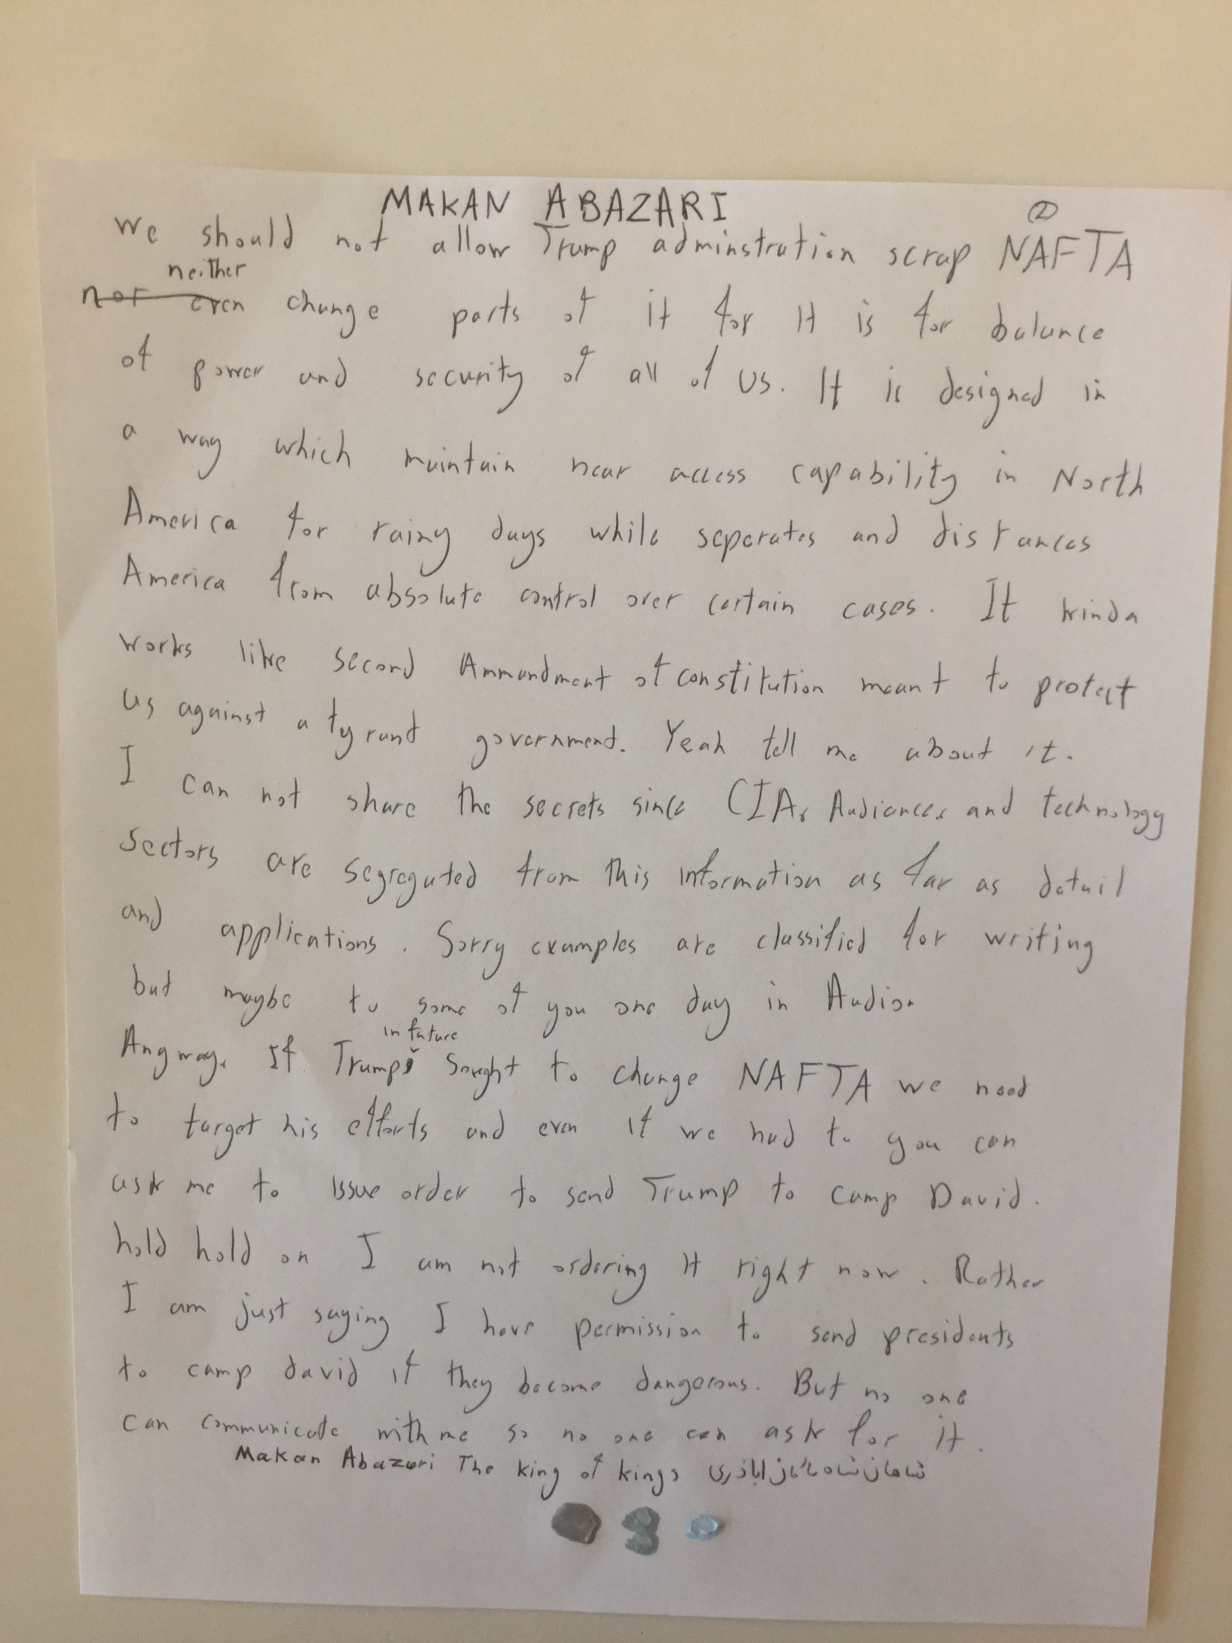 MAKAN ABAZARI
②
We should not allow Trump adminstration scrap NAFTA
neither
nor even change parts of it for it is for balance
of power and security of all of us. It is designed in
a way which maintain near access capability in North
America for rainy days while seperates and distances
America from absolute control over certain cases. It kinda
works like second Ammendment of constitution meant to protect
us against a tyrant government. Yeah tell me about it.
I can not share the secrets since CIA, Audiences and technology
sectors are segregated from this information as far as detail
and applications. Sorry examples are classified for writing
but maybe to some of you one day in Audio.
in future
Anyway, If Trump sought to change NAFTA we need
to target his efforts and even if we had to you can
ask me to issue order to send Trump to camp David.
hold hold on I am not ordering it right now. Rather
I am just saying I have permission to send presidents
to camp david if they become dangerous. But no one
can communicate with me so no one can ask for it.
Makan Abazari The king of kings شاهان شاه ماکان اباذری